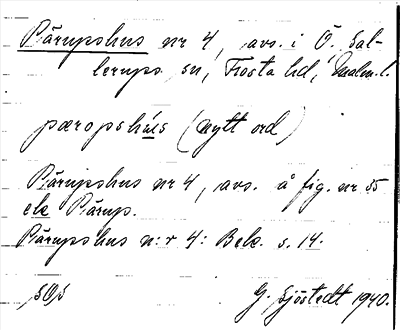 Pärupshus nr 4, avs. i Ö. Sal-
lerups sn, Frosta hd, Malm. l.
pæropshús (nytt ord)
Pärupshus nr 4, avs. å fig. nr 55
ek Pärup.
Pärupshus n:r 4: Bek. s. 14.
SOS G. Sjöstedt 1940.